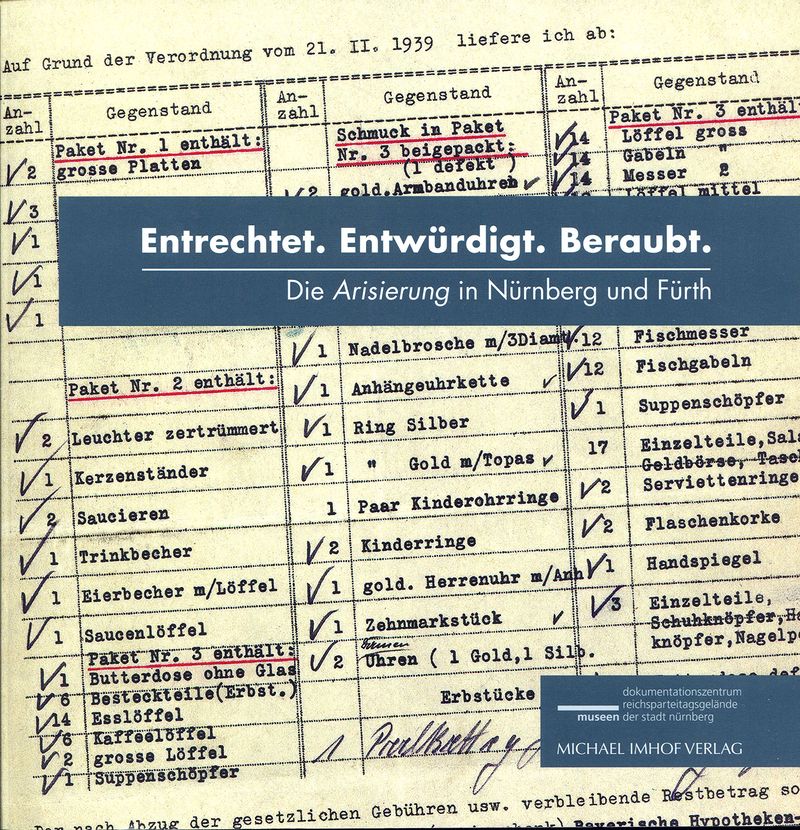 Auf Grund der Verordnung vom 21. II. 1939 liefere ich ab:
An-
zahl
Gegenstand
An-
zahl
Gegenstand
An-
zahl
Gegenstand
Paket Nr. 1 enthält:
2 grosse Platten
3
1
1
1
Paket Nr. 2 enthält:
2 Leuchter zertrümmert
1 Kerzenständer
2 Saucieren
1 Trinkbecher
1 Eierbecher m/Löffel
1 Saucenlöffel
Paket Nr. 3 enthält:
1 Butterdose ohne Glas
6 Besteckteile(Erbst.)
14 Esslöffel
6 Kaffeelöffel
2 grosse Löffel
1 Suppenschöpfer
Schmuck in Paket
Nr. 3 beigepackt:
(1 defekt )
2 gold.Armbanduhren
1 Nadelbrosche m/3Diamt.
1 Anhängeuhrkette
1 Ring Silber
1 " Gold m/Topas
1 Paar Kinderohrringe
2 Kinderringe
1 gold. Herrenuhr m/Anh
1 Zehnmarkstück
2 Uhren ( 1 Gold,1 Silb.
Erbstücke
1
Paket Nr. 3 enthält
14 Löffel gross
14 Gabeln "
14 Messer 2
Löffel mittel
12 Fischmesser
12 Fischgabeln
1 Suppenschöpfer
17 Einzelteile,Sal
Geldbörse, Tasc
2 Serviettenringe
2 Flaschenkorke
1 Handspiegel
3 Einzelteile,
Schuhknöpfer,H
knöpfer,Nagelp
Entrechtet. Entwürdigt. Beraubt.
Die Arisierung in Nürnberg und Fürth
dokumentationszentrum
reichsparteitagsgelände
museen der stadt nürnberg
MICHAEL IMHOF VERLAG
Der nach Abzug der gesetzlichen Gebühren usw. verbleibende Restbetrag so
Bayerische Hypotheken-